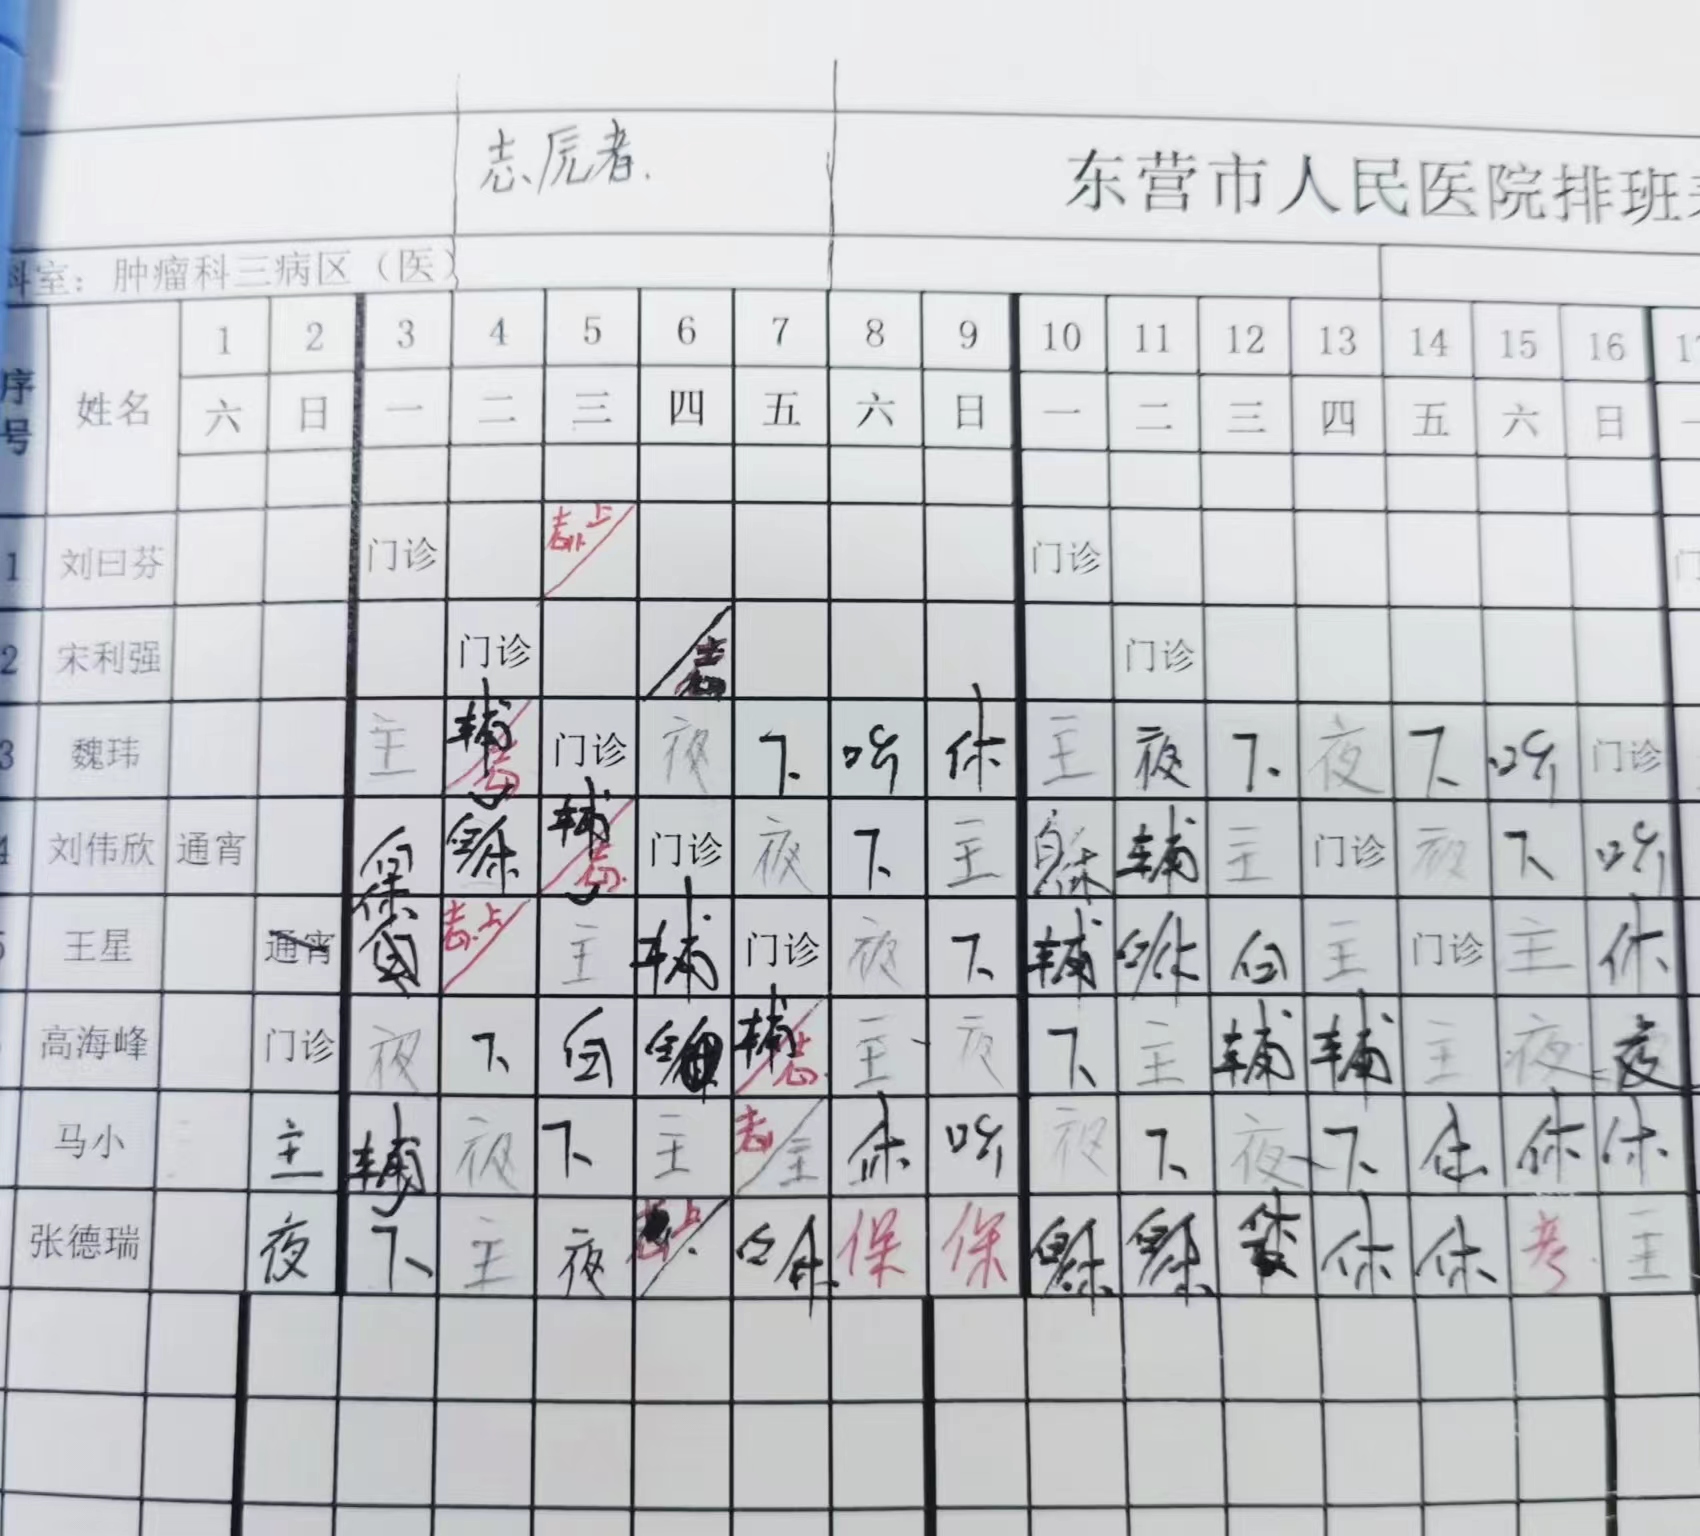 志愿者.
东营市人民医院排班
科室：肿瘤科三病区（医）
序号 姓名 1 2 3 4 5 6 7 8 9 10 11 12 13 14 15 16
六 日 一 二 三 四 五 六 日 一 二 三 四 五 六 日
1 刘曰芬 门诊 志上 门诊
2 宋利强 门诊 志 门诊
3 魏玮 主 辅 志 门诊 夜 下 休 主 夜 下 夜 下 门诊
4 刘伟欣 通宵 辅 志 门诊 夜 下 主 辅 主 门诊 夜 下
王星 通宵 志上 主 辅 门诊 夜 下 辅 白 主 门诊 主 休
高海峰 门诊 夜 下 白 辅 志 主 夜 下 主 辅 辅 主 夜 夜
马小 主 辅 夜 下 主 志 主 休 夜 下 夜 下 休 休
张德瑞 夜 下 主 夜 志上 保 保 休 休 考 主